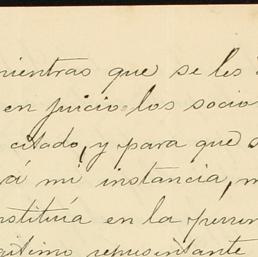 mientras que se les
en juicio los socio
citado, y para que
á mi instancia,
nstituía en la
représentante